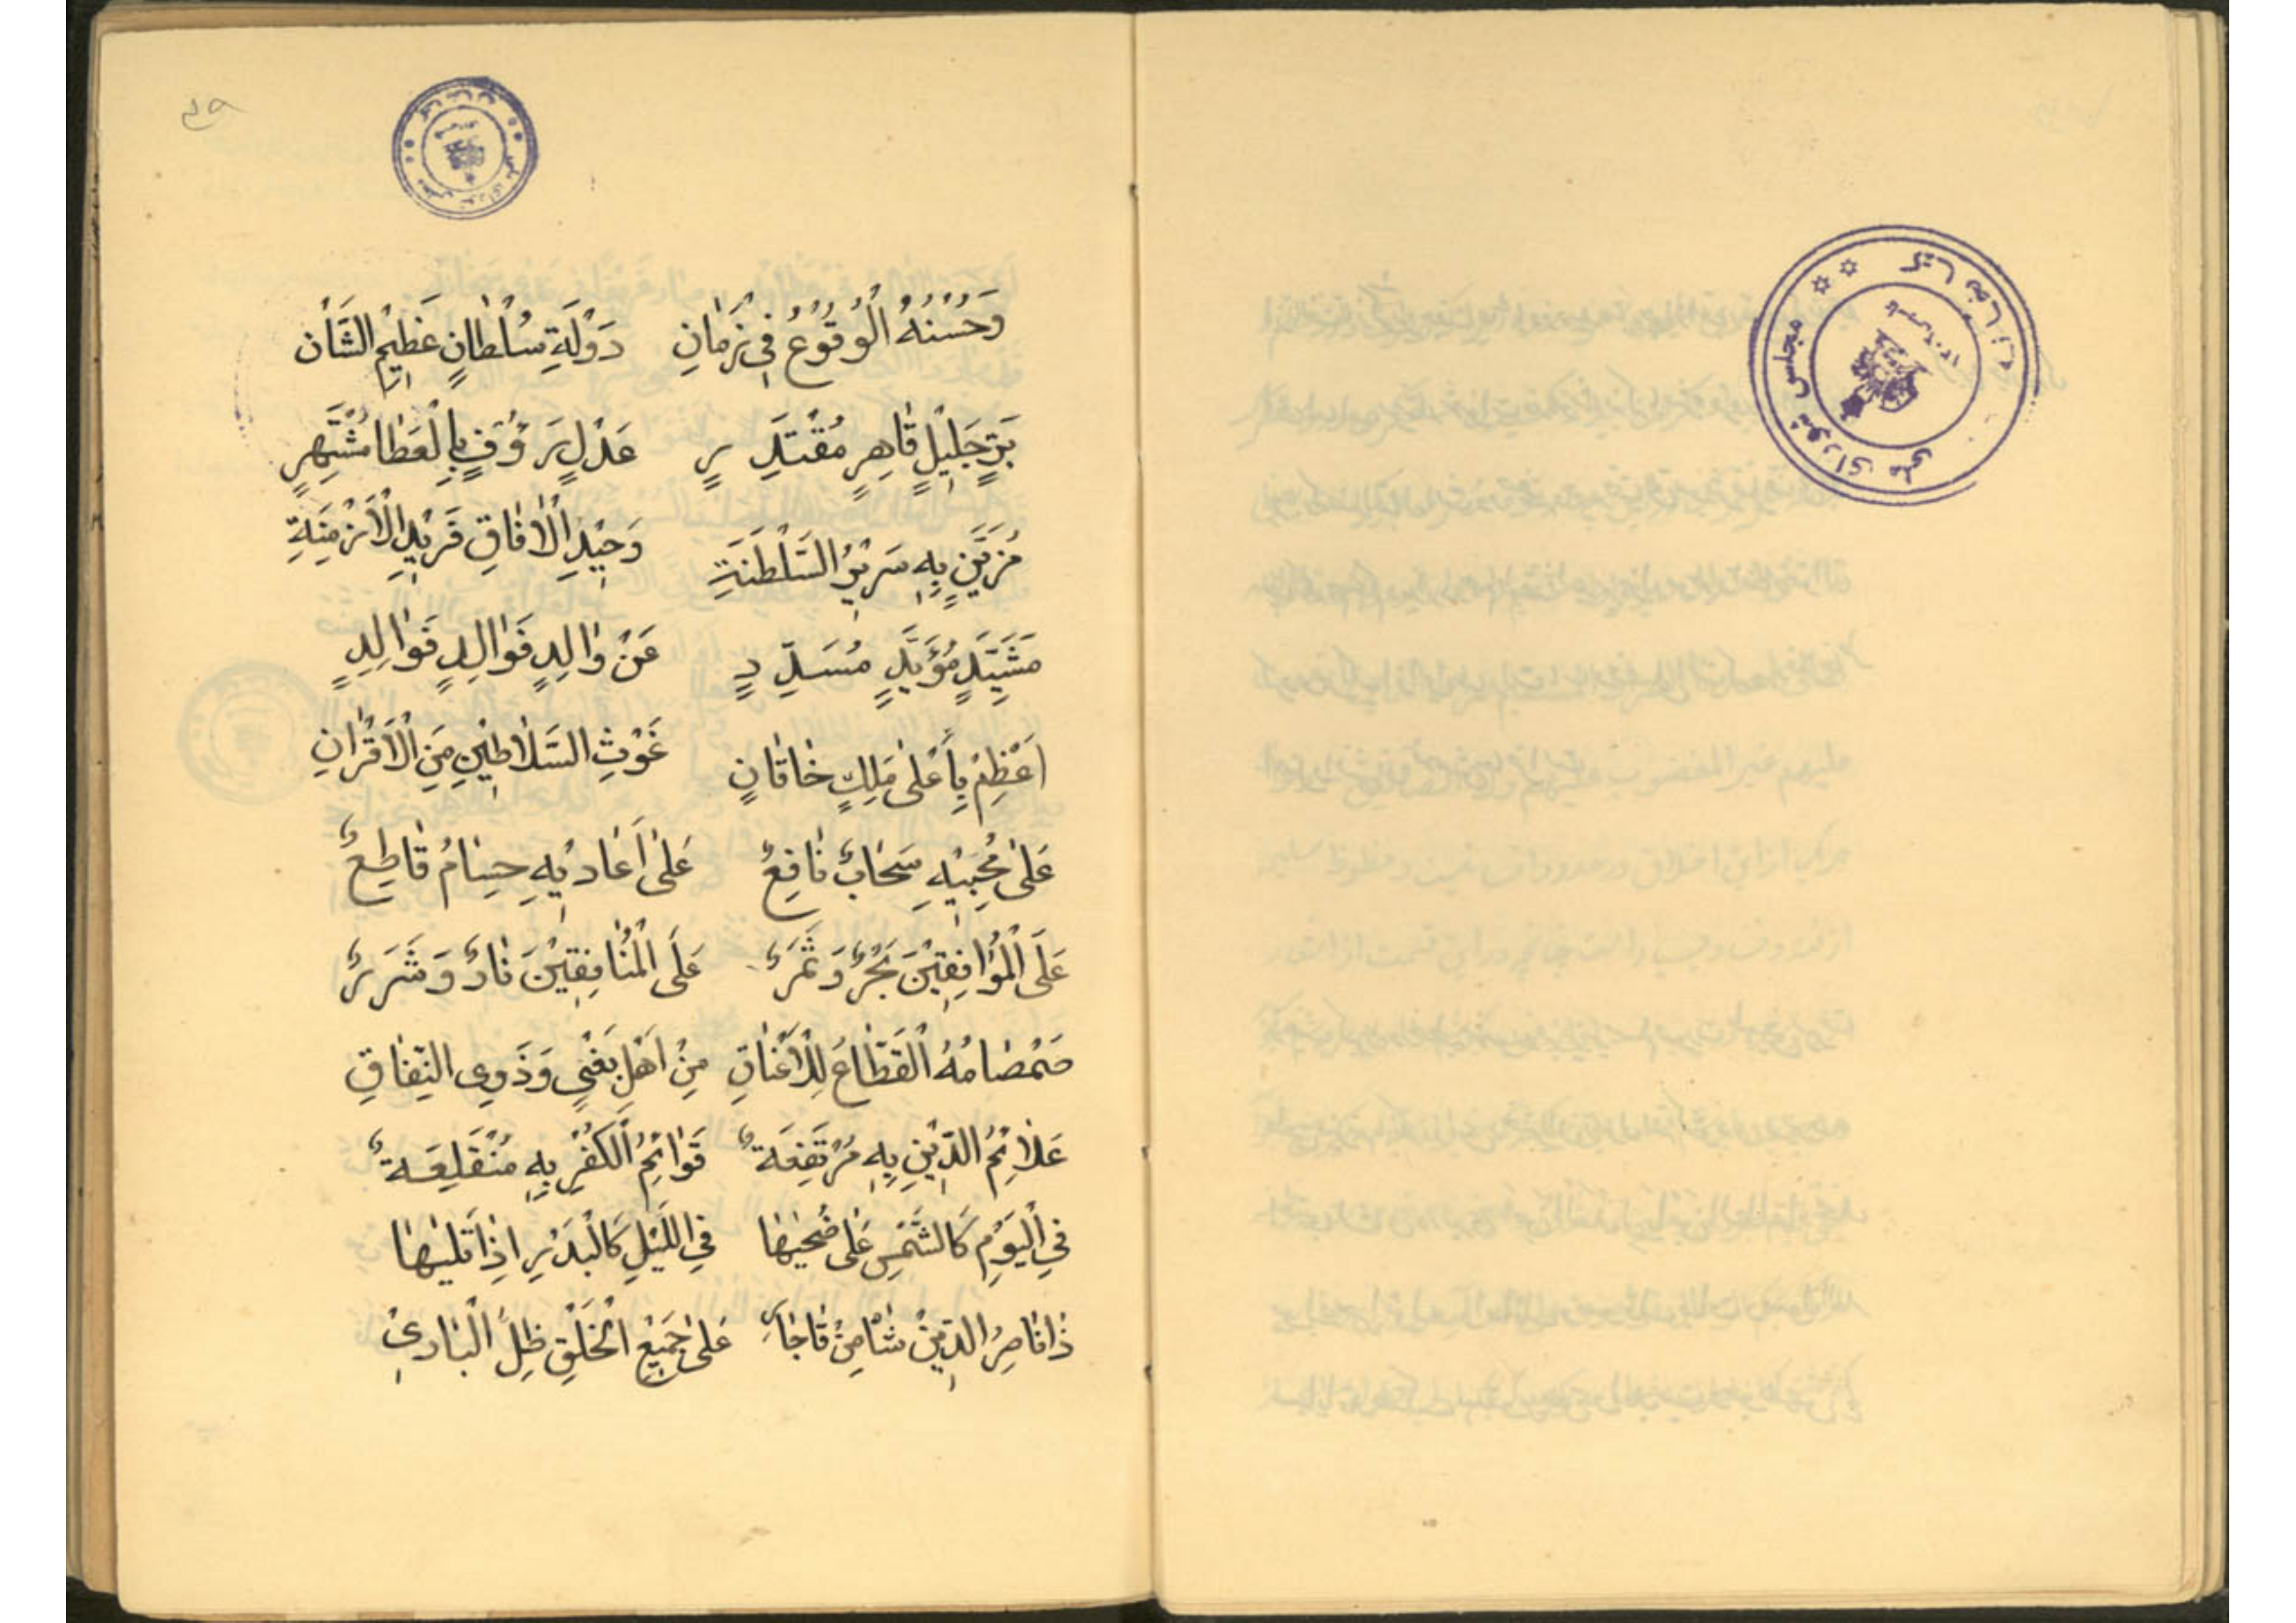 ۵۹
وَحُسْنُهُ الْوُقُوعُ فِي زَمَانِ دَوْلَةِ سُلْطَانٍ عَظِيمِ الشَّأْن
بَرٍّ جَلِيْلٍ قَاهِرٍ مُقْتَدِرٍ عَدْلٍ رَؤُفٍ بِالْعَطَا مُشْتَهِرٍ
مُزَيَّنٍ بِهِ سَرِيْرُ السَّلْطَنَةِ وَحِيْدِ الْاٰفَاقِ فَرِيْدِ الْأَزْمِنَةِ
مَشَيَّدٍ مُؤَيَّدٍ مُسَدِّدٍ عَنْ وَالِدٍ فَوَالِدٍ فَوَالِدٍ
اَعْظِمْ بِأَعْلَى مَلِكٍ خَاقَانٍ غَوْثِ السَّلَاطِيْنِ مِنَ الْأَقْرَانِ
عَلَى مُحِبِّيْهِ سَحَابٌ نَافِعٌ عَلَى أَعَادِيْهِ حِسَامٌ قَاطِعٌ
عَلَى الْمُوَافِقِيْنَ بَحْرٌ وَثَمَرٌ عَلَى الْمُنَافِقِيْنَ نَارٌ وَشَرَرٌ
صَمْصَامُهُ الْقَطَّاعُ لِلْأَعْنَاقِ مِنْ اَهْلِ بَغْيٍ وَذَوِي النِّفَاقِ
عَلَائِمُ الدِّيْنِ بِهِ مُرْتَفِعَةٌ قَوَائِمُ الْكُفْرِ بِهِ مُنْقَلِعَةٌ
فِي الْيَوْمِ كَالشَّمْسِ عَلَى ضُحَيٰهَا فِي اللَّيْلِ كَالْبَدْرِ اِذَا تَلَيٰهَا
ذَا نَاصِرُ الدِّيْنْ شَا مِنْ قَاجَارِ عَلَى جَمِيْعِ الْخَلْقِ ظِلُّ الْبَارِيْ
كتابخانه مجلس شورای ملی